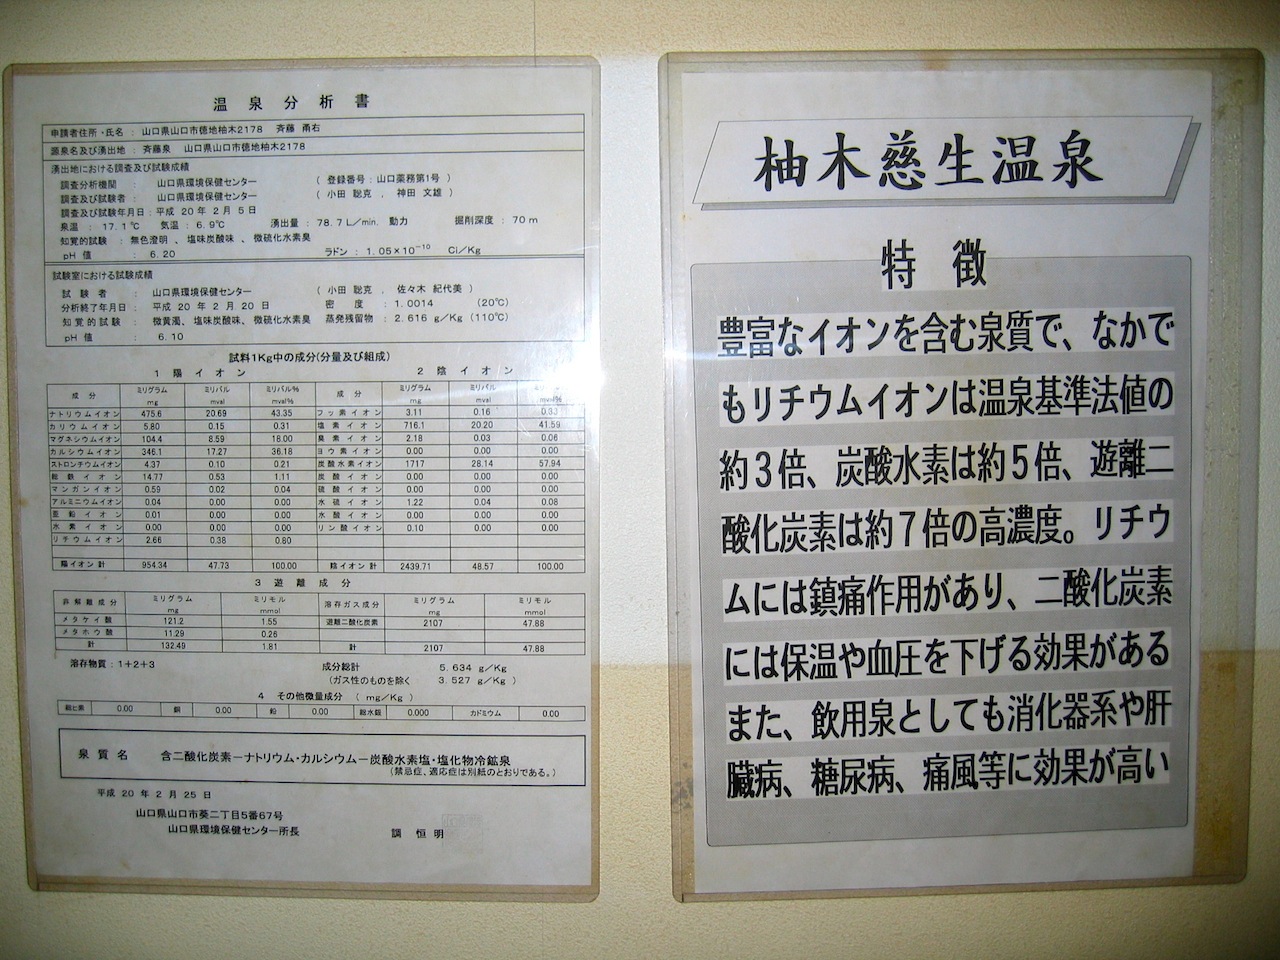 温泉分析書
申請者住所・氏名 : 山口県山口市徳地柚木2178 斉藤 甬右
源泉名及び湧出地 : 斉藤泉 山口県山口市徳地柚木2178
湧出地における調査及び試験成績
調査分析機関 : 山口県環境保健センター ( 登録番号 : 山口薬務第1号 )
調査及び試験者 : 山口県環境保健センター ( 小田 聡克 , 神田 文雄 )
調査及び試験年月日 : 平成 20 年 2 月 5 日
泉温 : 17.1℃ 気温 : 6.9℃ 湧出量 : 78.7L/min. 動力 掘削深度 : 70 m
知覚的試験 : 無色澄明 、 塩味炭酸味 、 微硫化水素臭
pH 値 : 6.20 ラドン : 1.05×10⁻¹⁰ Ci/Kg
試験室における試験成績
試験者 : 山口県環境保健センター ( 小田 聡克 , 佐々木 紀代美 )
分析終了年月日 : 平成 20 年 2 月 20 日 密度 : 1.0014 (20℃)
知覚的試験 : 微黄濁、塩味炭酸味、微硫化水素臭 蒸発残留物 : 2.616 g/Kg (110℃)
pH 値 : 6.10
試料1Kg中の成分(分量及び組成)
1 陽イオン 2 陰イオン
成分 ミリグラム mg ミリバル mval ミリバル% mval% 成分 ミリグラム mg ミリバル mval ミリバル% mval%
ナトリウムイオン 475.6 20.69 43.35 フッ素イオン 3.11 0.16 0.33
カリウムイオン 5.80 0.15 0.31 塩素イオン 716.1 20.20 41.59
マグネシウムイオン 104.4 8.59 18.00 臭素イオン 2.18 0.03 0.06
カルシウムイオン 346.1 17.27 36.18 ヨウ素イオン 0.00 0.00 0.00
ストロンチウムイオン 4.37 0.10 0.21 炭酸水素イオン 1717 28.14 57.94
総鉄イオン 14.77 0.53 1.11 炭酸イオン 0.00 0.00 0.00
マンガンイオン 0.59 0.02 0.04 硫酸イオン 0.00 0.00 0.00
アルミニウムイオン 0.04 0.00 0.00 水硫イオン 1.22 0.04 0.08
亜鉛イオン 0.01 0.00 0.00 水酸イオン 0.00 0.00 0.00
水素イオン 0.00 0.00 0.00 リン酸イオン 0.10 0.00 0.00
リチウムイオン 2.66 0.38 0.80
陽イオン計 954.34 47.73 100.00 陰イオン計 2439.71 48.57 100.00
3 遊離成分
非解離成分 ミリグラム mg ミリモル mmol 溶存ガス成分 ミリグラム mg ミリモル mmol
メタケイ酸 121.2 1.55 遊離二酸化炭素 2107 47.88
メタホウ酸 11.29 0.26
計 132.49 1.81 計 2107 47.88
溶存物質 : 1+2+3 成分総計 5.634 g/Kg
(ガス性のものを除く 3.527 g/Kg )
4 その他微量成分 ( mg/Kg )
総ヒ素 0.00 銅 0.00 鉛 0.00 総水銀 0.000 カドミウム 0.00
泉質名 含二酸化炭素ーナトリウム・カルシウムー炭酸水素塩・塩化物冷鉱泉
(禁忌症、適応症は別紙のとおりである。)
平成 20 年 2 月 25 日
山口県山口市葵二丁目5番67号
山口県環境保健センター所長 調 恒明
柚木慈生温泉
特徴
豊富なイオンを含む泉質で、なかで
もリチウムイオンは温泉基準法値の
約3倍、炭酸水素は約5倍、遊離二
酸化炭素は約7倍の高濃度。リチウ
ムには鎮痛作用があり、二酸化炭素
には保温や血圧を下げる効果がある
また、飲用泉としても消化器系や肝
臓病、糖尿病、痛風等に効果が高い